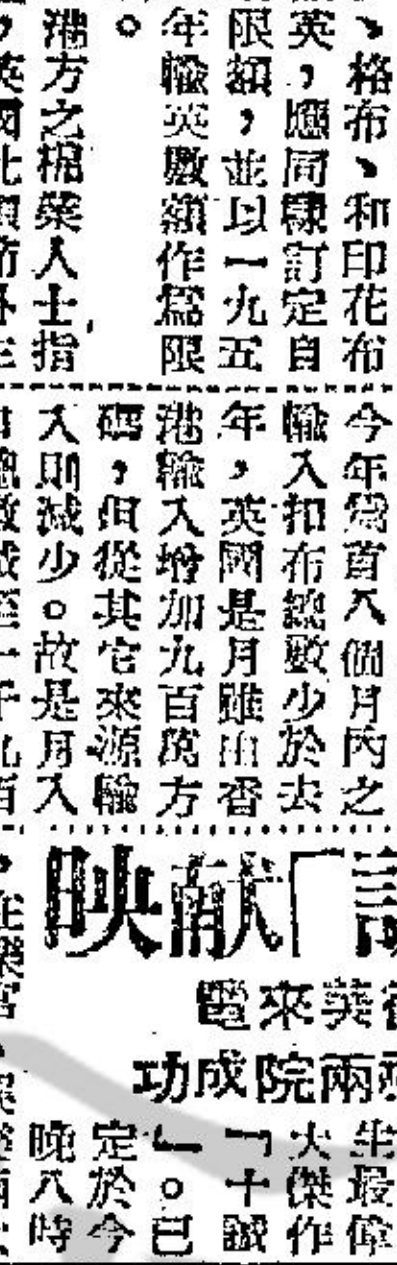 、格布、和印花布
英，應同隸訂定自
限額，並以一九五
年輸英數額作爲限
。
港方之棉業人士指
今年爲首八個月內之
輸入扣布總數少於去
年，英國是月雖由香
港輸入增加九百萬方
碼，但從其它來源輸
入則減少。故是月入
献映
英來電
兩院成功
生最偉
大傑作
「十誡
」。已
定於今
晚八時